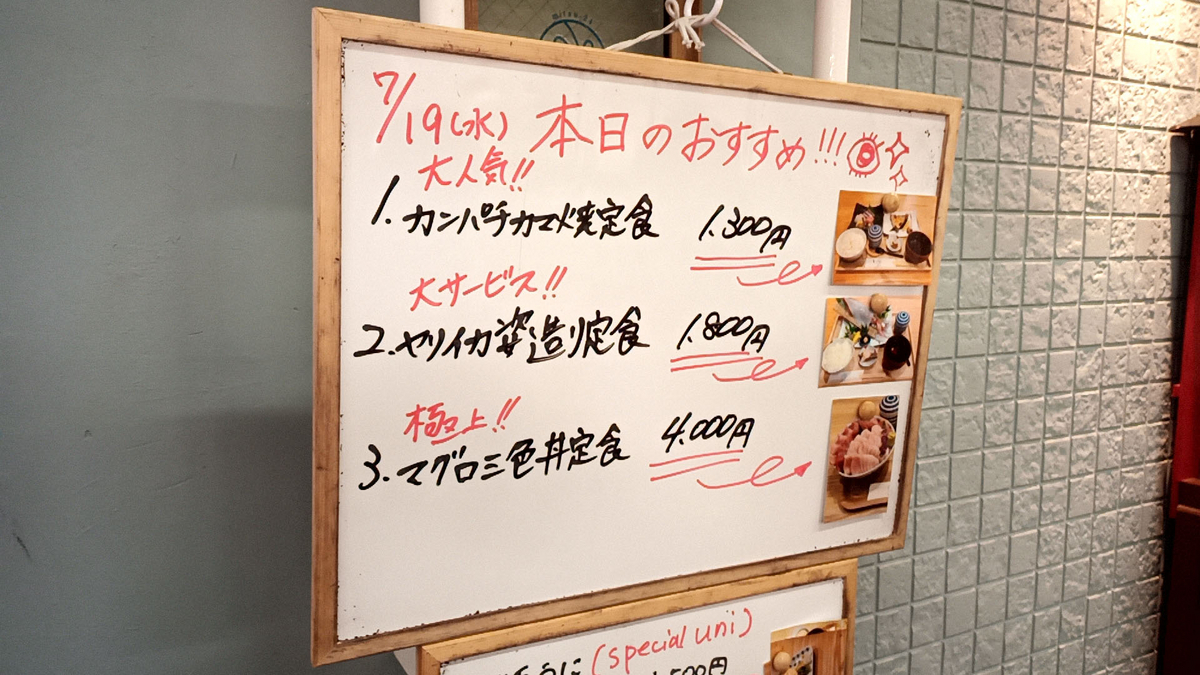 7/19(水) 本日のおすすめ!!!
大人気!!
1. カンパチカマ焼定食 1.300円
大サービス!!
2. ヤリイカ姿造り定食 1.800円
極上!!
3. マグロ三色丼定食 4.000円
うに (special uni)
500円